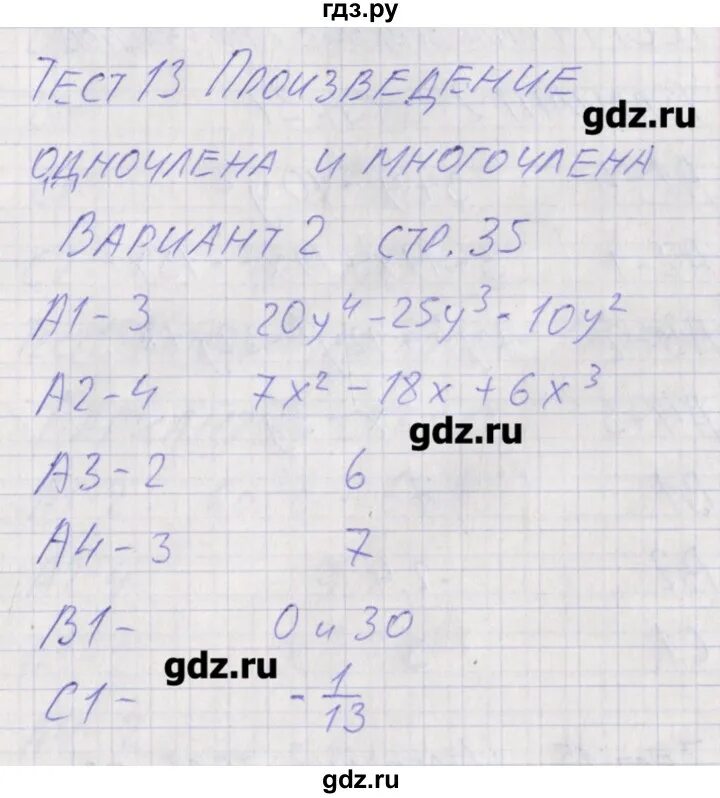 гдз.ру
Тест 13 Произведение
gdz.ru
одночлена и многочлена
Вариант 2 стр. 35
А1 - 3 20y⁴ - 25y³ - 10y²
А2 - 4 7x² - 18x + 6x³
gdz.ru
А3 - 2 6
А4 - 3 7
В1 - 0 и 30
gdz.ru
С1 - - 1/13
gdz.ru